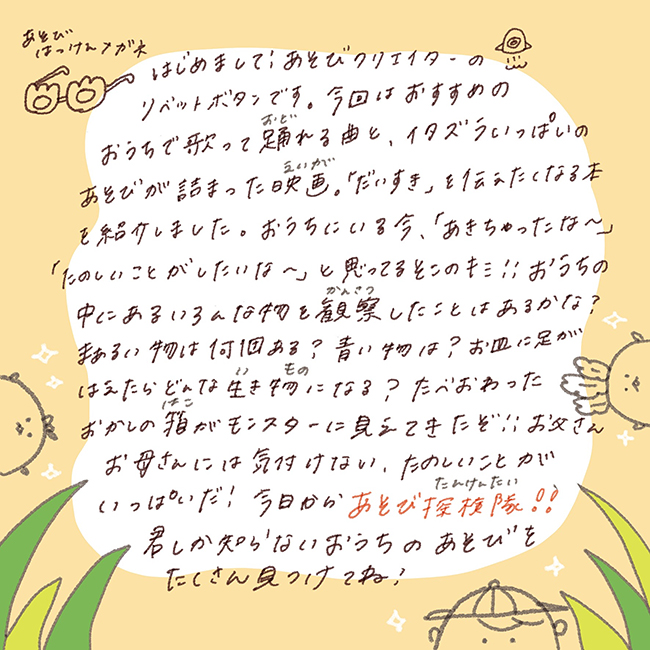 あそび
はっけんメガネ
はじめまして！あそびクリエイターの
リベットボタンです。今回はおすすめの
おど
おうちで歌って踊れる曲と、イタズラいっぱいの
えいが
あそびが詰まった映画。「だいすき」を伝えたくなる本
を紹介しました。おうちにいる今、「あきちゃったな〜」
「たのしいことがしたいな〜」と思ってるそこのキミ！！おうちの
かんさつ
中にあるいろんな物を観察したことはあるかな？
まあるい物は何個ある？青い物は？お皿に足が
い もの
はえたらどんな生き物になる？たべおわった
はこ
おかしの箱がモンスターに見えてきたぞ！！お父さん
お母さんには気付けない、たのしいことが
いっぱいだ！今日から
たんけんたい
あそび探検隊！！
君しか知らないおうちのあそびを
たくさん見つけてね！